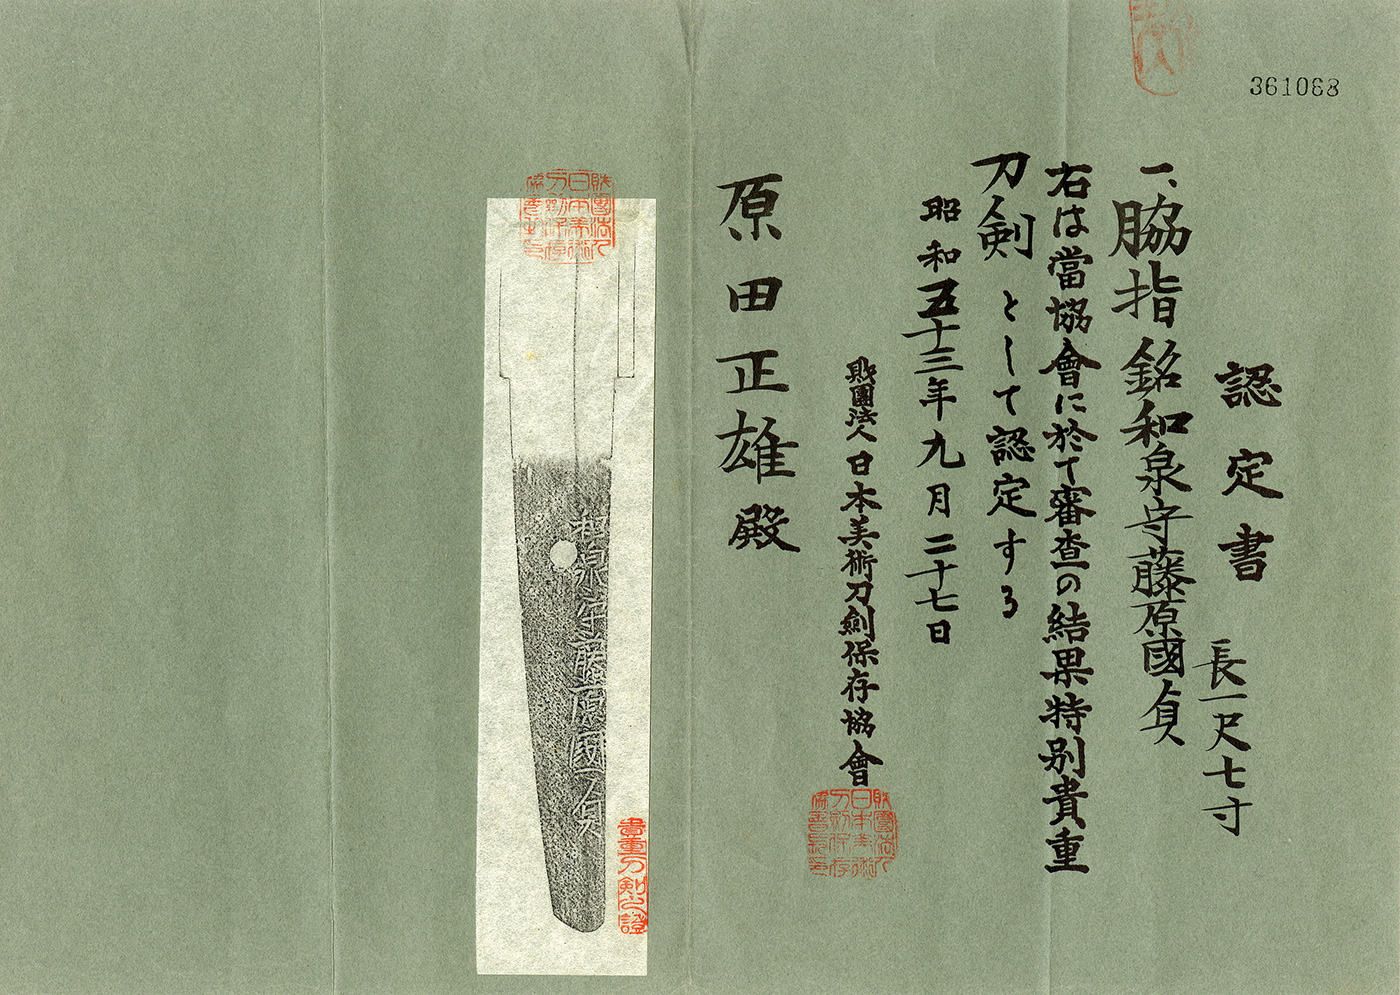 361068
認定書
長一尺七寸
一、脇指 銘和泉守藤原國貞
右は當協會に於て審査の結果特別貴重
刀剣として認定する
昭和五十三年九月二十七日
財團法人日本美術刀剣保存協會
財團法人日本美術刀剣保存協會
原田正雄殿
和泉守藤原國貞
貴重刀剣之證